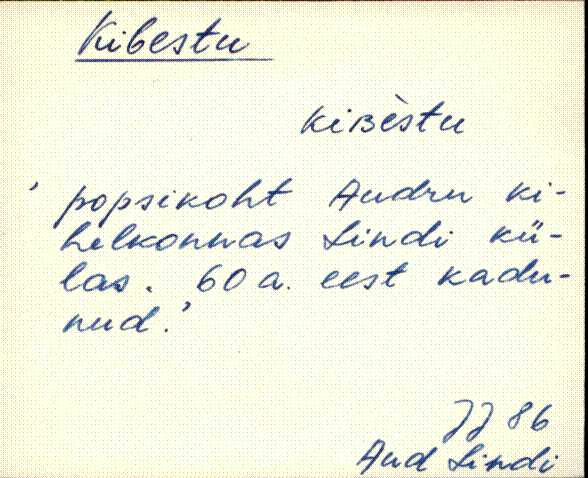 Kibestu
kiBèstu
' popsikoht Audru ki-
helkonnas Lindi kü-
las. 60 a. eest kadu-
nud.'
JJ 86
Aud Lindi